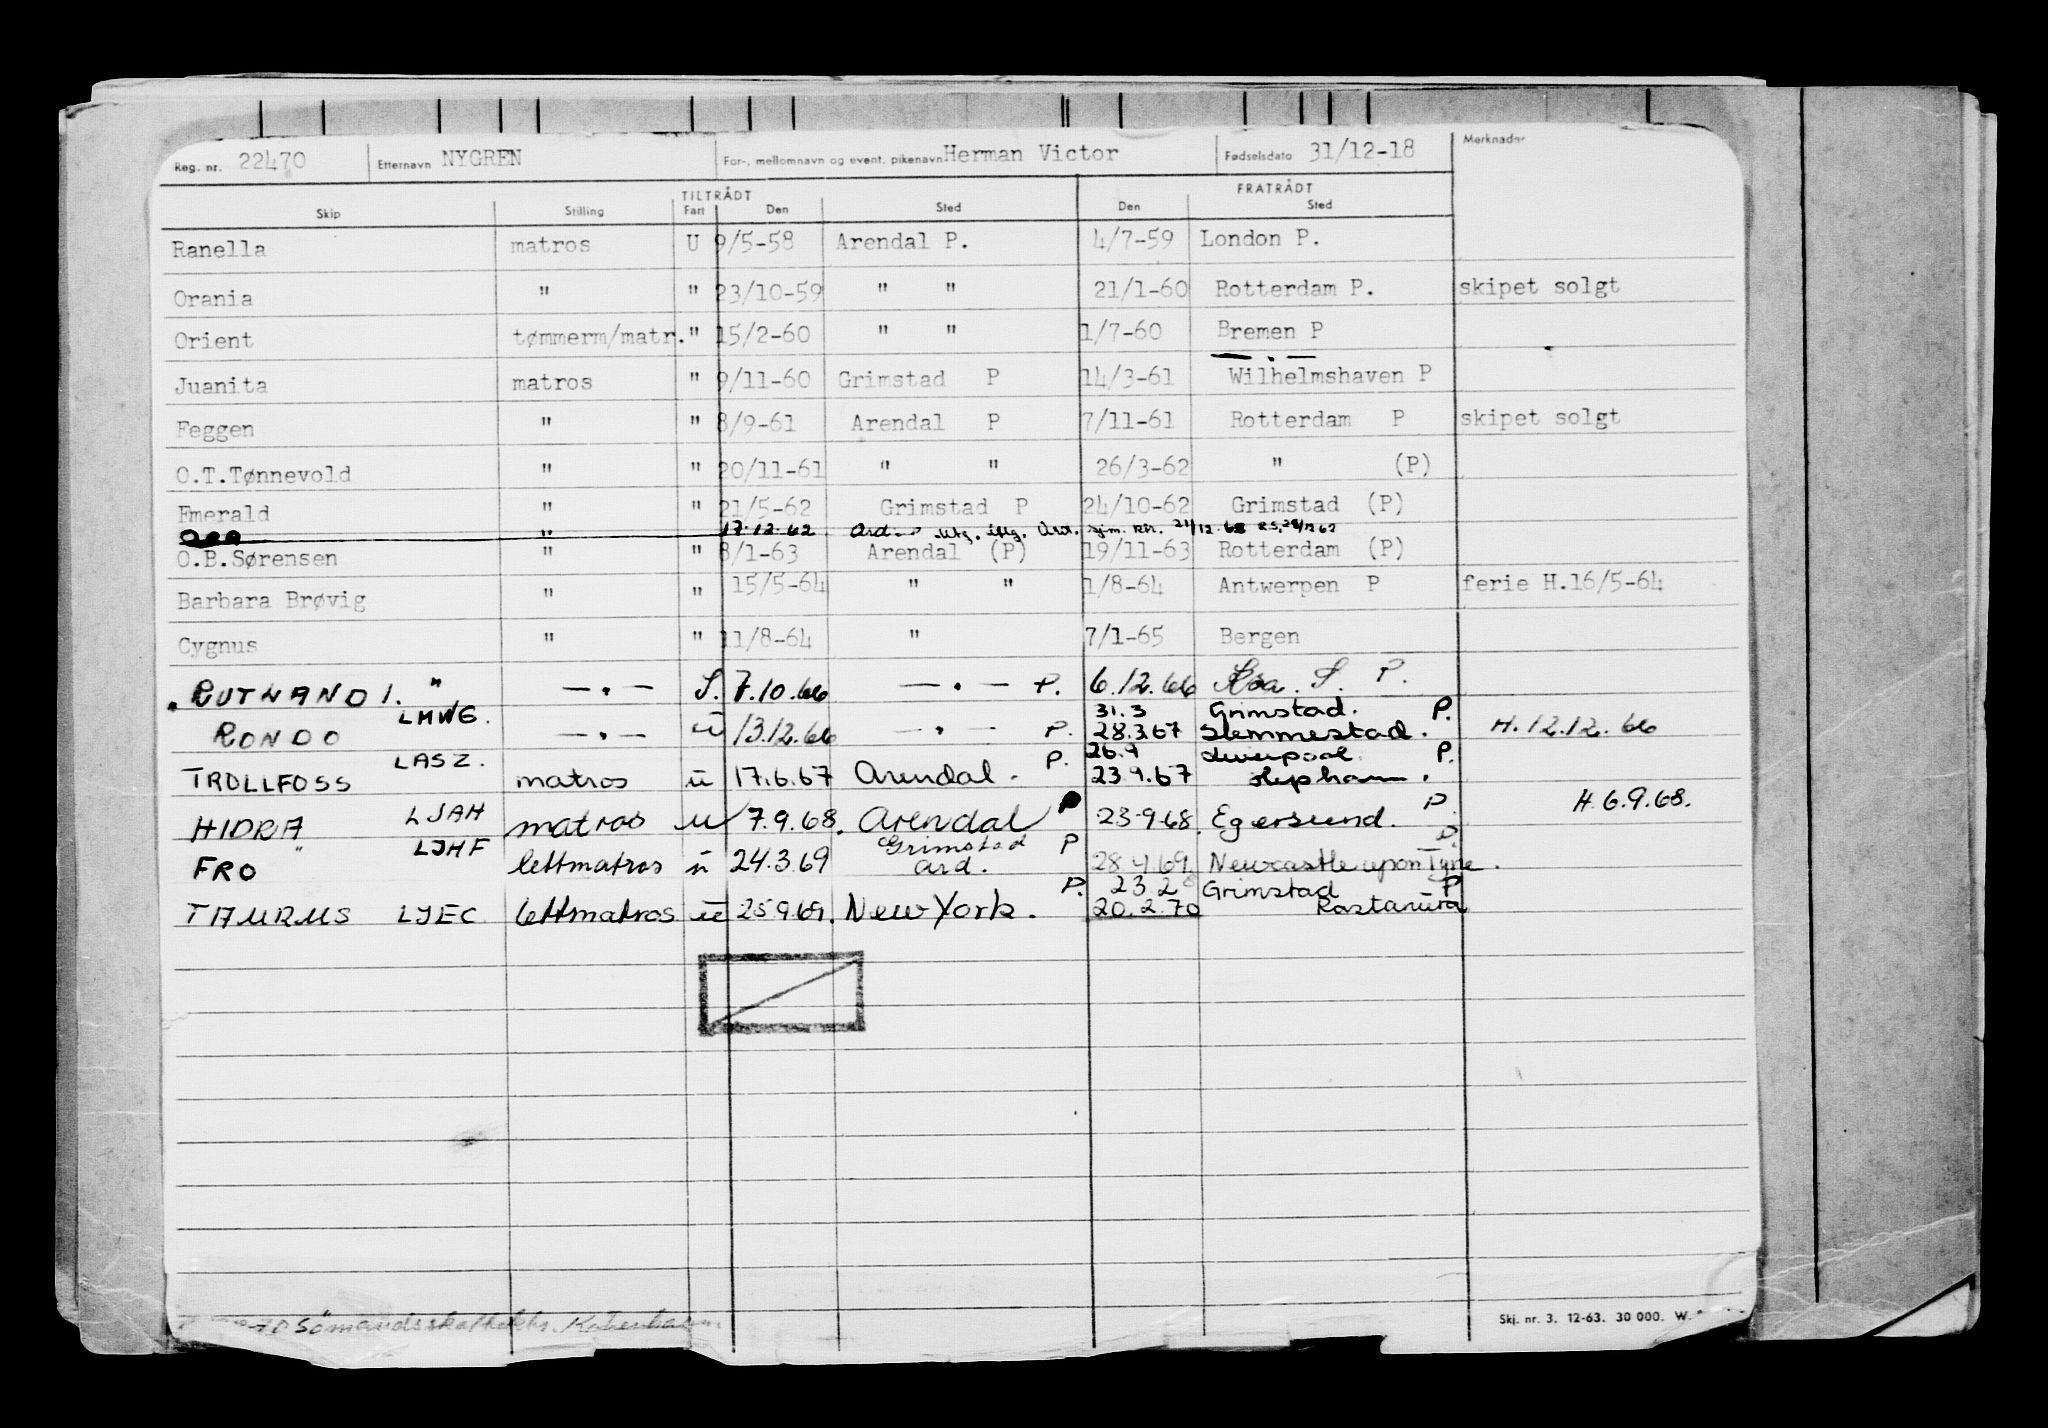 Reg. nr. 22470 Etternavn NYGREN For-, mellomnavn og event. pikenavn Herman Victor Fødselsdato 31/12-18 Merknader
TILTRÅDT FRATRÅDT
Skip Stilling Fart Den Sted Den Sted
Ranella matros U 9/5-58 Arendal P. 4/7-59 London P.
Orania " " 23/10-59 " " 21/1-60 Rotterdam P. skipet solgt
Orient tømmerm/matr. " 15/2-60 " " 1/7-60 Bremen P
Juanita matros " 9/11-60 Grimstad P 14/3-61 Wilhelmshaven P
Feggen " " 8/9-61 Arendal P 7/11-61 Rotterdam P skipet solgt
O.T.Tønnevold " " 20/11-61 " " 26/3-62 " (P)
Emerald " " 21/5-62 Grimstad P 24/10-62 Grimstad (P)
" 17.12.62 Ard.
O.B.Sørensen " " 8/1-63 Arendal (P) 19/11-63 Rotterdam (P)
Barbara Brøvig " " 15/5-64 " " 1/8-64 Antwerpen P ferie H.16/5-64
Cygnus " " 11/8-64 " 7/1-65 Bergen
RUTLAND I. " — . — S. 7.10.66 — . — P. 6.12.66 S. P.
31.3 Grimstad. P.
RONDO LMWG. — . — u 13.12.66 — . — P. 28.3.67 Slemmestad. H.12.12.66
26.9 Liverpool. P.
TROLLFOSS LASZ. matros u 17.6.67 Arendal. P. 23.9.67
HIDRA LJAH matros u 7.9.68. Arendal P 23.9.68. Egersund. P. H.6.9.68.
Grimstad P P
FRO " LJHF lettmatros u 24.3.69 Ard. 28.4.69. Newcastle upon Tyne.
P. 23.2 Grimstad P
TAURUS LJEC lettmatros u 25.9.69. New York. 20.2.70 Rastanura
Skj. nr. 3. 12-63. 30 000. W.